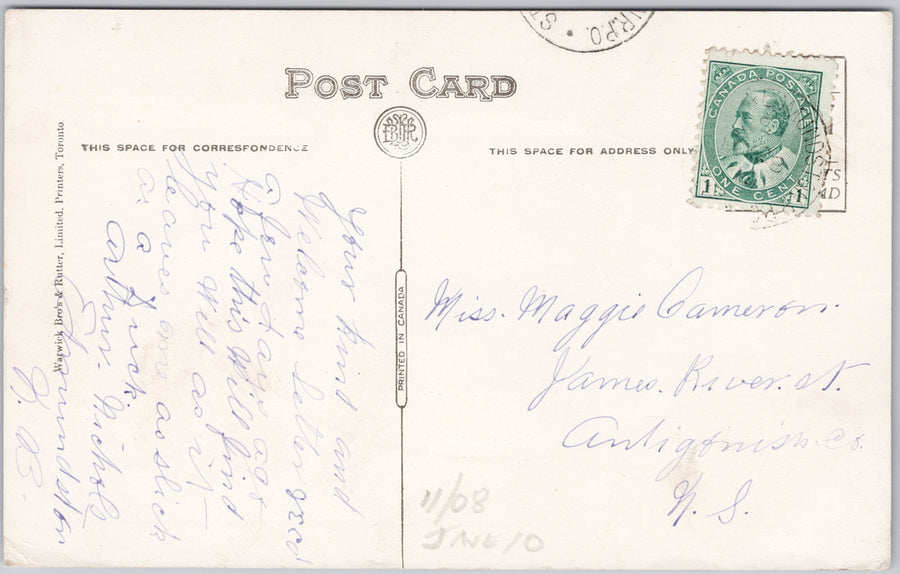 POST CARD
THIS SPACE FOR CORRESPONDENCE
THIS SPACE FOR ADDRESS ONLY
Warwick Bro's & Rutter, Limited, Printers, Toronto
PRINTED IN CANADA
R.P.O. • ST
CANADA POSTAGE
ONE CENT
1 1
Your kind and
Welcome letter
a few days ago
Hope this Will find
you Well as it
leaves me as slick
as a duck
Arthur Nichols
Edmundston
N.B.
Miss. Maggie Cameron.
James. River. st.
Antigonish. Co.
N. S.
11/08